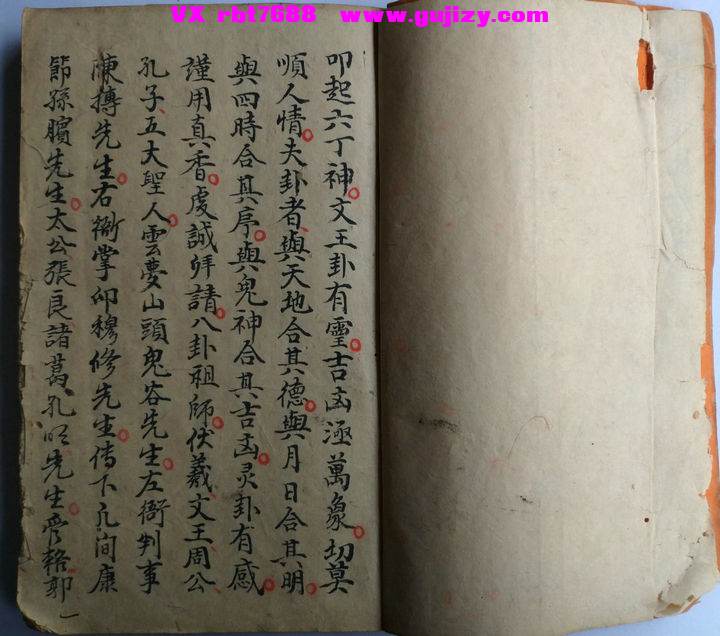 VX rbt7688 www.gujizy.com
叩起六丁神文王卦有霊吉凶極萬象切莫
順人情夫卦者與天地合其德與月日合其明
與四時合其序與鬼神合其吉凶灵卦有感
謹用真香虔誠拜請八卦祖師伏羲文王周公
孔子五大聖人雲夢山頭鬼谷先生左衙判事
陳摶先生右衙掌印穆修先生傳下孔洞康
節孫臏先生太公張良諸葛孔明先生管輅郭